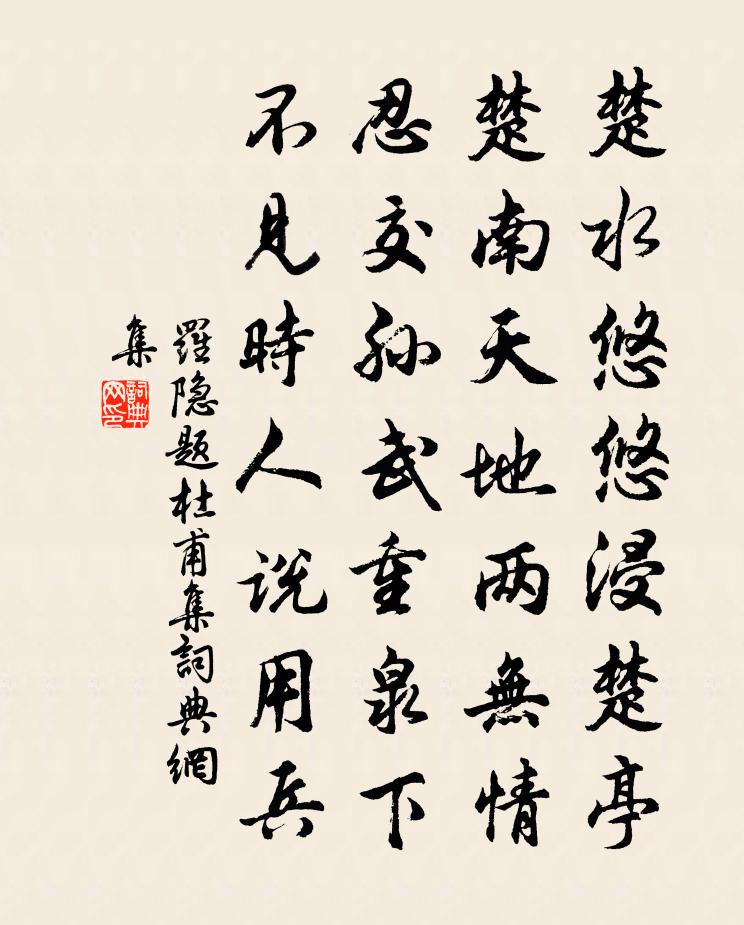 楚水悠悠浸楚亭
楚南天地两無情
忍交孙武重泉下
不見時人说用兵
羅隐题杜甫集詞典網
集
詞典网印